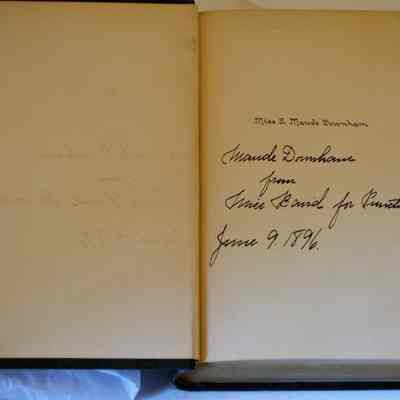 Miss S. Maude Downham
Maude Downham
from
Miss Baird for Punct
June 9. 1896.